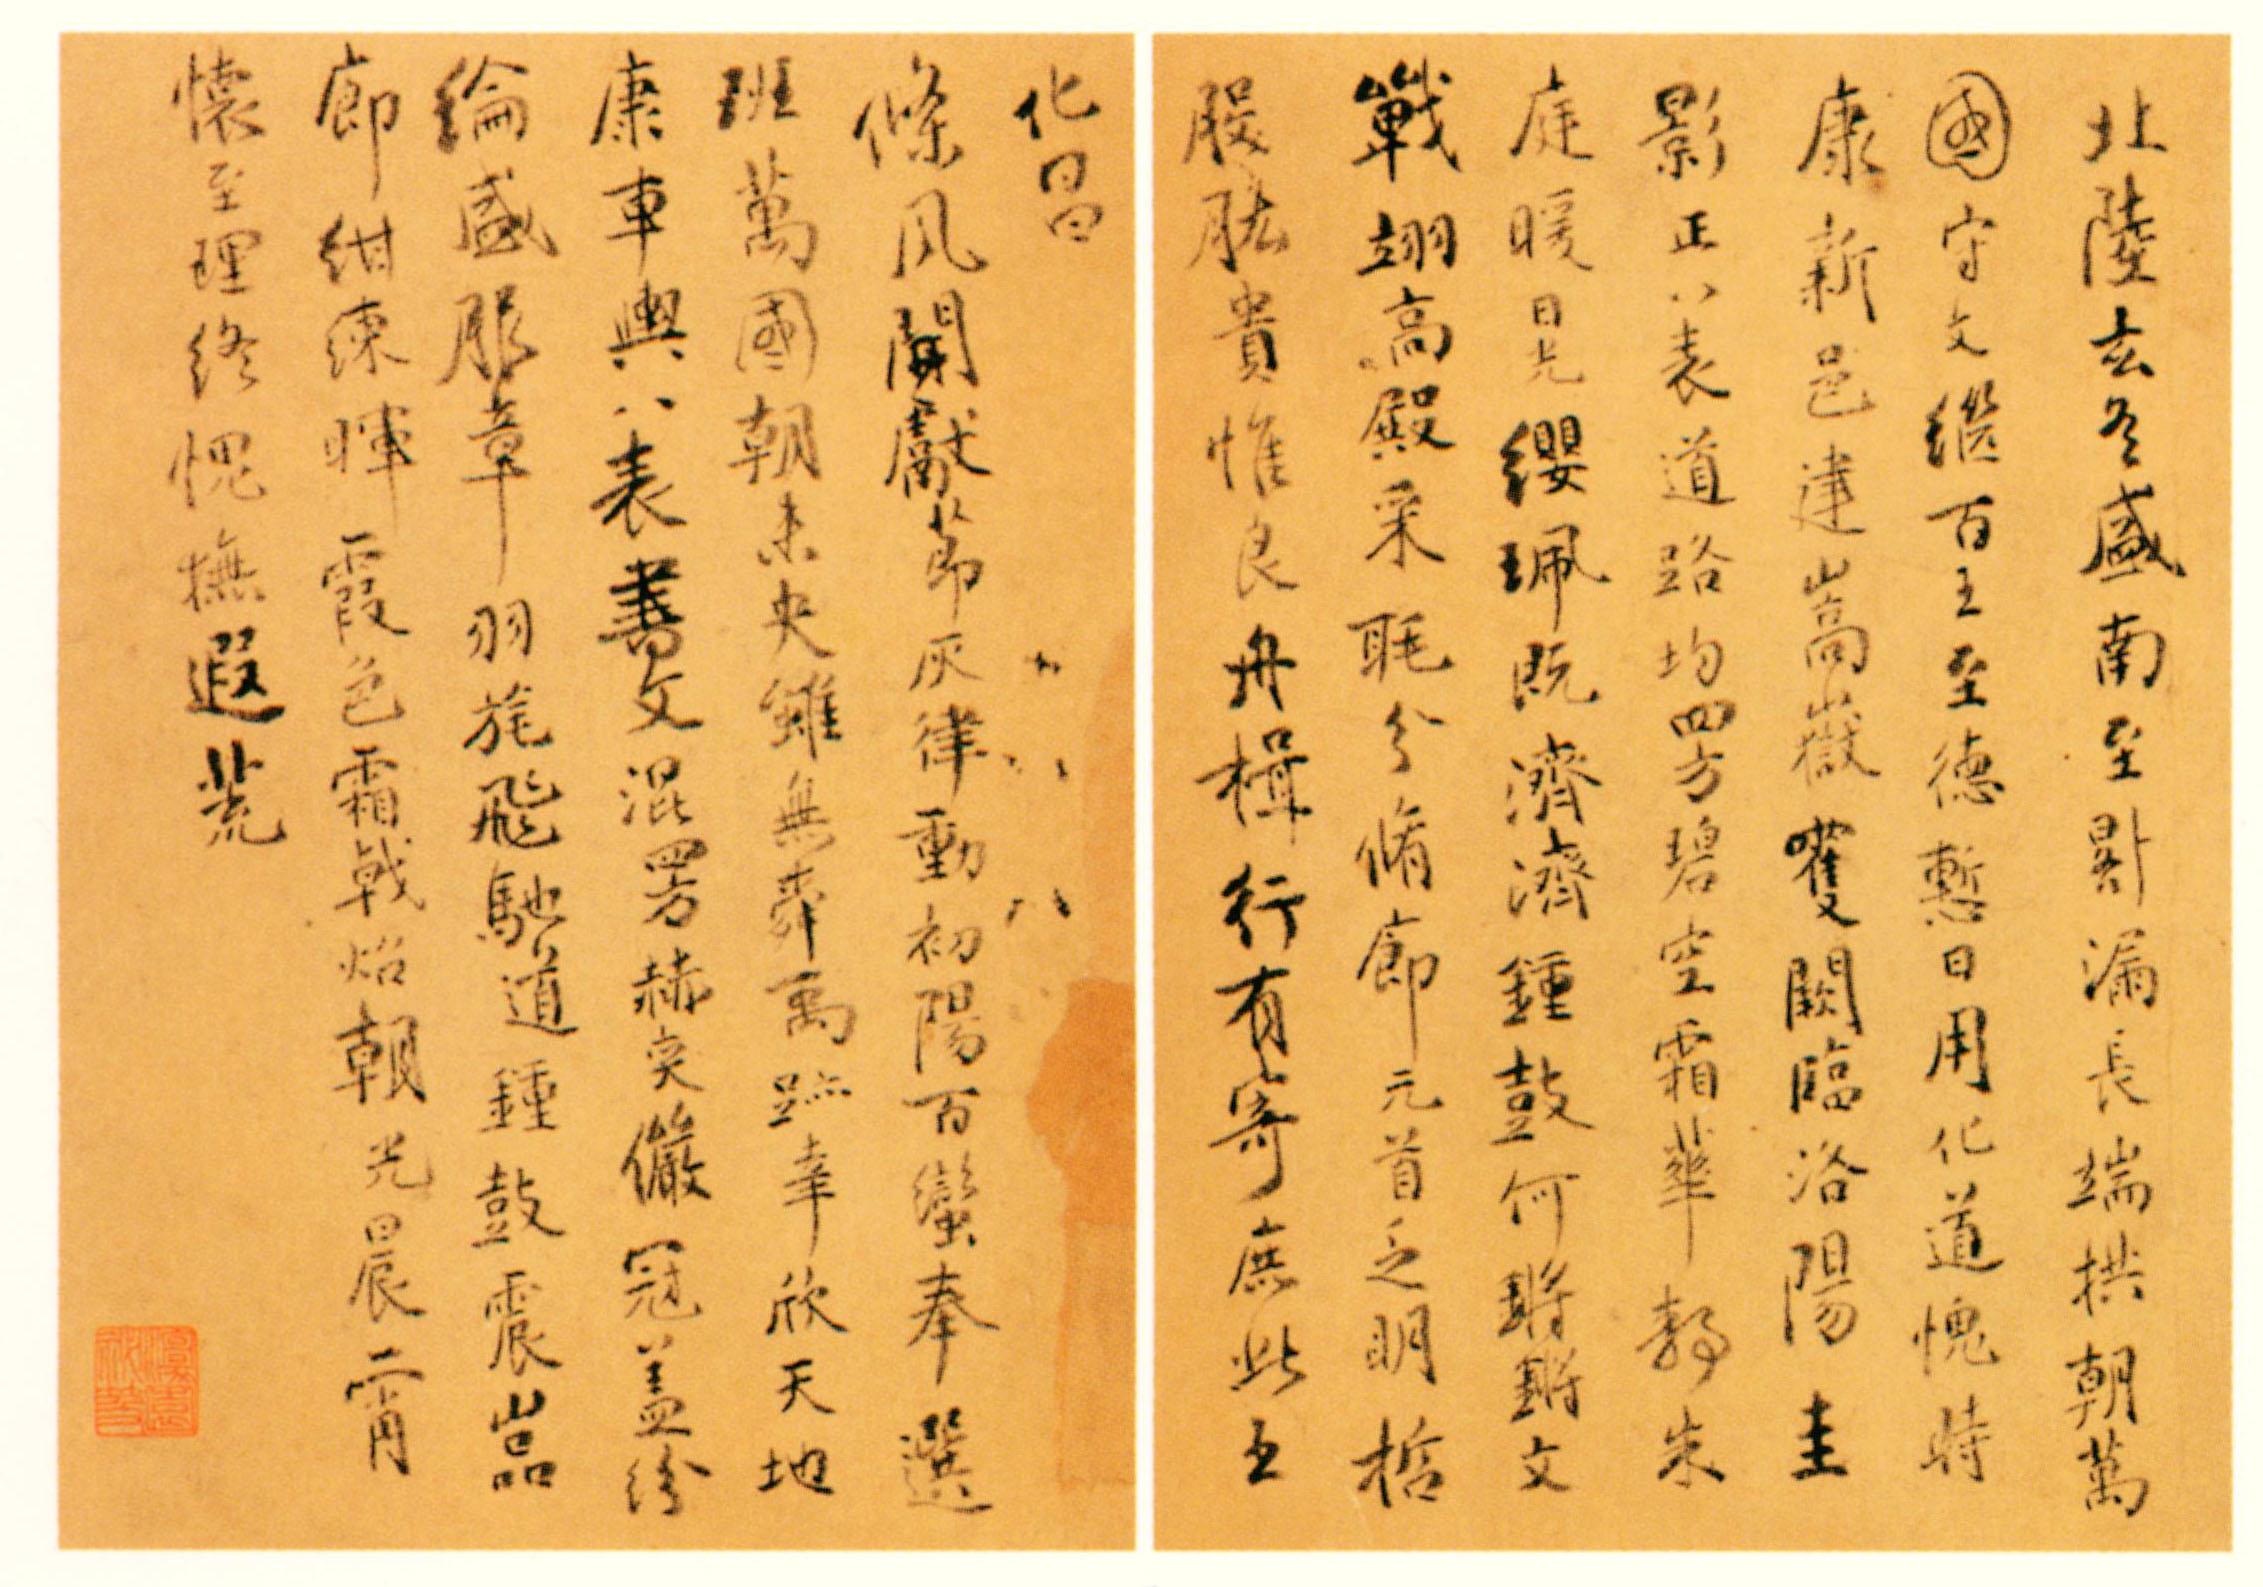 北陸玄冬盛南至晷漏長端拱朝萬
國守文繼百王至德慙日用化道愧時
康新邑建嵩嶽雙闕臨洛陽圭
影正八表道路均四方碧空霜華静朱
庭暖日光纓珮既濟濟鍾鼓何鏘鏘文
戟翊高殿采眊分脩廊元首乏明哲
股肱貴惟良舟楫行有寄庶此王
化昌
條風開獻節灰律動初陽百蠻奉選
班萬國朝未央雖無舜禹跡幸欣天地
康車輿八表書文混四方赫奕儼冠蓋紛
綸盛服章羽旄飛馳道鍾鼓震嵒
廊紺練暉霞色霜戟焰朝光日晨二宵
懷至理終愧撫遐荒